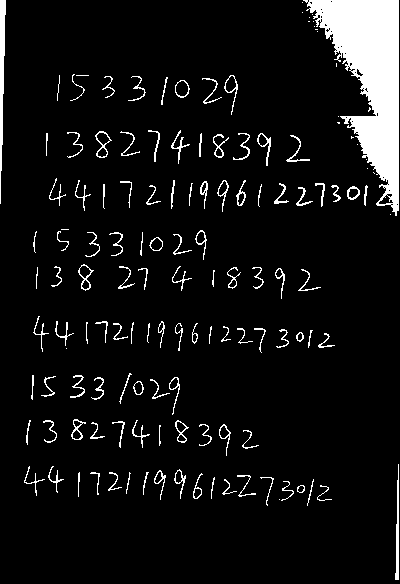 15331029
13827418392
441721199612273012
15331029
138 27 4 18392
441721199612273012
1533 1029
13827418392
441721199612273012